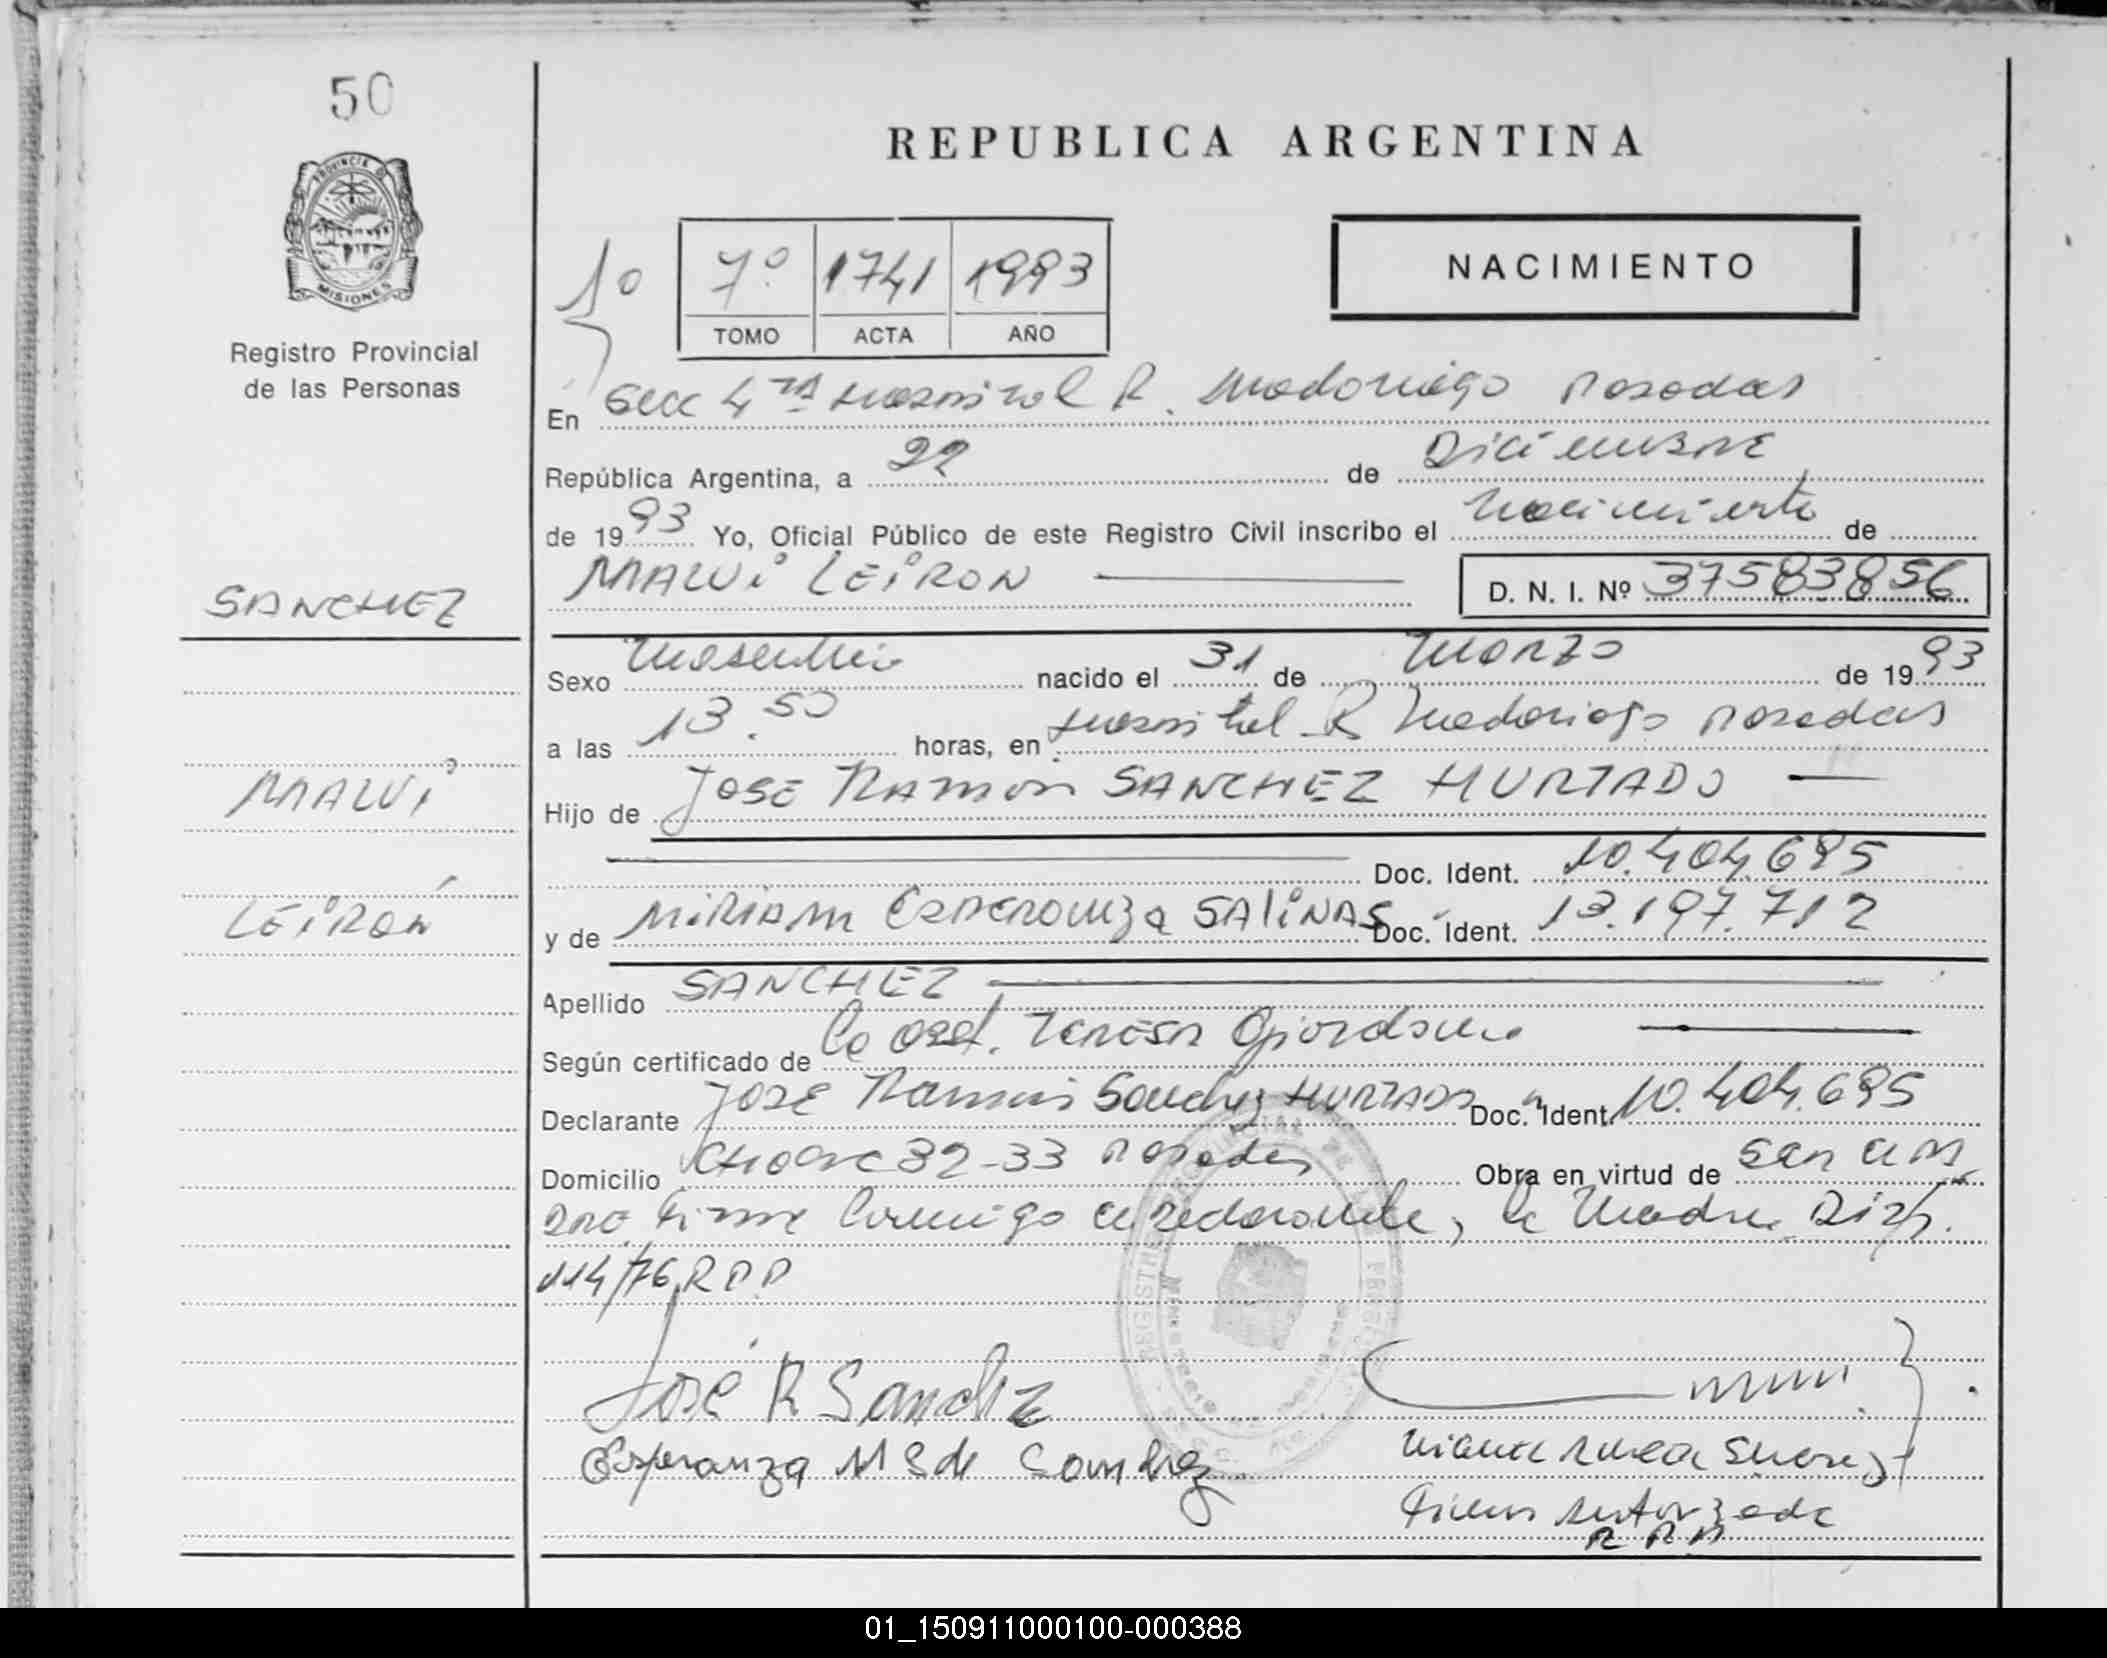 50
PROVINCIA DE
MISIONES
Registro Provincial
de las Personas
REPUBLICA ARGENTINA
1º
7º 1741 1993
TOMO ACTA AÑO
NACIMIENTO
En Secc 4ta Hospital R. Madariaga Posadas
República Argentina, a 22 de Diciembre
de 1993 Yo, Oficial Público de este Registro Civil inscribo el Nacimiento de
MALVi LEiRON
D. N. I. Nº 37583856
SANCHEZ
Sexo Masculino nacido el 31 de Marzo de 1993
a las 13.50 horas, en Hospital R Madariaga Posadas
MALVi
Hijo de JOSE RAMON SANCHEZ HURTADO
Doc. Ident. 10.404.695
LEiRON
y de MiRIAM ESPERANZA SALiNAS Doc. Ident. 13.197.712
Apellido SANCHEZ
Según certificado de la Obst. TERESA Giordano
Declarante JOSE Ramon Sanchez HURTADO Doc. Ident. 10.404.695
Domicilio 32-33 Posadas Obra en virtud de ser el P
Firma Conmigo el declarante, la Madre Disp.
114/76 R P P
José R Sanchez
Esperanza M S de Sanchez
Suarez
Firma Autorizada
R P P
01_150911000100-000388